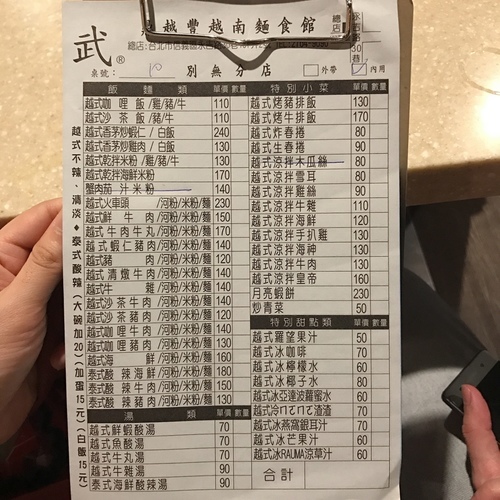 武®
越豐越南麵食館
總店
別無分店
桌號：
外帶
內用
飯麵類 單價 數量
越式咖哩飯/雞/豬/牛 110
越式沙茶飯/豬/牛 110
越式香茅炒蝦仁/白飯 240
越式香茅炒雞肉/白飯 130
越式乾拌米粉/雞/豬/牛 130
越式乾拌海鮮米粉 170
蟹肉茄汁米粉 140
越式火車頭/河粉/米粉/麵 230
越式鮮牛肉/河粉/米粉/麵 150
越式牛肉牛丸/河粉/米粉/麵 170
越式蝦仁豬肉/河粉/米粉/麵 140
越式豬肉/河粉/米粉/麵 120
越式清燉牛肉/河粉/米粉/麵 140
越式牛雜/河粉/米粉/麵 140
越式沙茶牛肉/河粉/米粉/麵 140
越式沙茶豬肉/河粉/米粉/麵 120
越式咖哩牛肉/河粉/米粉/麵 140
越式咖哩豬肉/河粉/米粉/麵 120
越式海鮮/河粉/米粉/麵 160
泰式酸辣海鮮/河粉/米粉/麵 180
泰式酸辣牛肉/河粉/米粉/麵 150
泰式酸辣豬肉/河粉/米粉/麵 130
湯類 單價 數量
越式鮮蝦酸湯 70
越式魚酸湯 70
越式牛丸湯 70
越式牛雜湯 90
泰式海鮮酸辣湯 90
特別小菜 單價 數量
越式烤豬排飯 130
越式烤牛排飯 170
越式炸春捲 80
越式生春捲 90
越式涼拌木瓜絲 80
越式涼拌雪耳 80
越式涼拌雞絲 90
越式涼拌牛雜 110
越式涼拌海鮮 120
越式涼拌手扒雞 130
越式涼拌海神 130
越式涼拌牛肉 130
越式涼拌皇帝 160
月亮蝦餅 230
炒青菜 50
特別甜點類 單價 數量
越式羅望果汁 50
越式冰咖啡 70
越式冰檸檬水 60
越式冰椰子水 80
越式冰亞達波蘿蜜水 60
越式冷ㄇㄘㄇㄘ渣渣 70
越式冰燕窩銀耳汁 70
越式冰芒果汁 60
越式冰RAUMA涼草汁 60
合計
越式不辣、清淡◆泰式酸辣(大碗加20)(加蛋15元)(白飯15元)